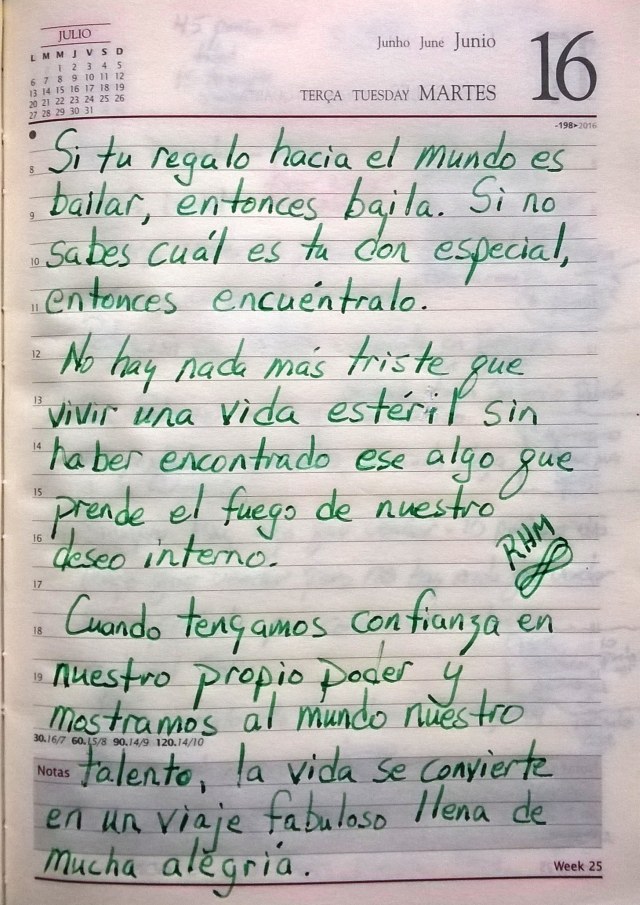 JULIO
L M M J V S D
1 2 3 4 5
6 7 8 9 10 11 12
13 14 15 16 17 18 19
20 21 22 23 24 25 26
27 28 29 30 31
Junho June Junio
16
TERÇA TUESDAY MARTES
-198▸2016
8 Si tu regalo hacia el mundo es
9 bailar, entonces baila. Si no
10 sabes cuál es tu don especial,
11 entonces encuéntralo.
12 No hay nada más triste que
13 vivir una vida estéril sin
14 haber encontrado ese algo que
15 prende el fuego de nuestro
16 deseo interno.
RHM
17
18 Cuando tengamos confianza en
19 nuestro propio poder y
mostramos al mundo nuestro
30.16/7 60.15/8 90.14/9 120.14/10
Notas talento, la vida se convierte
en un viaje fabuloso llena de
mucha alegría.
Week 25